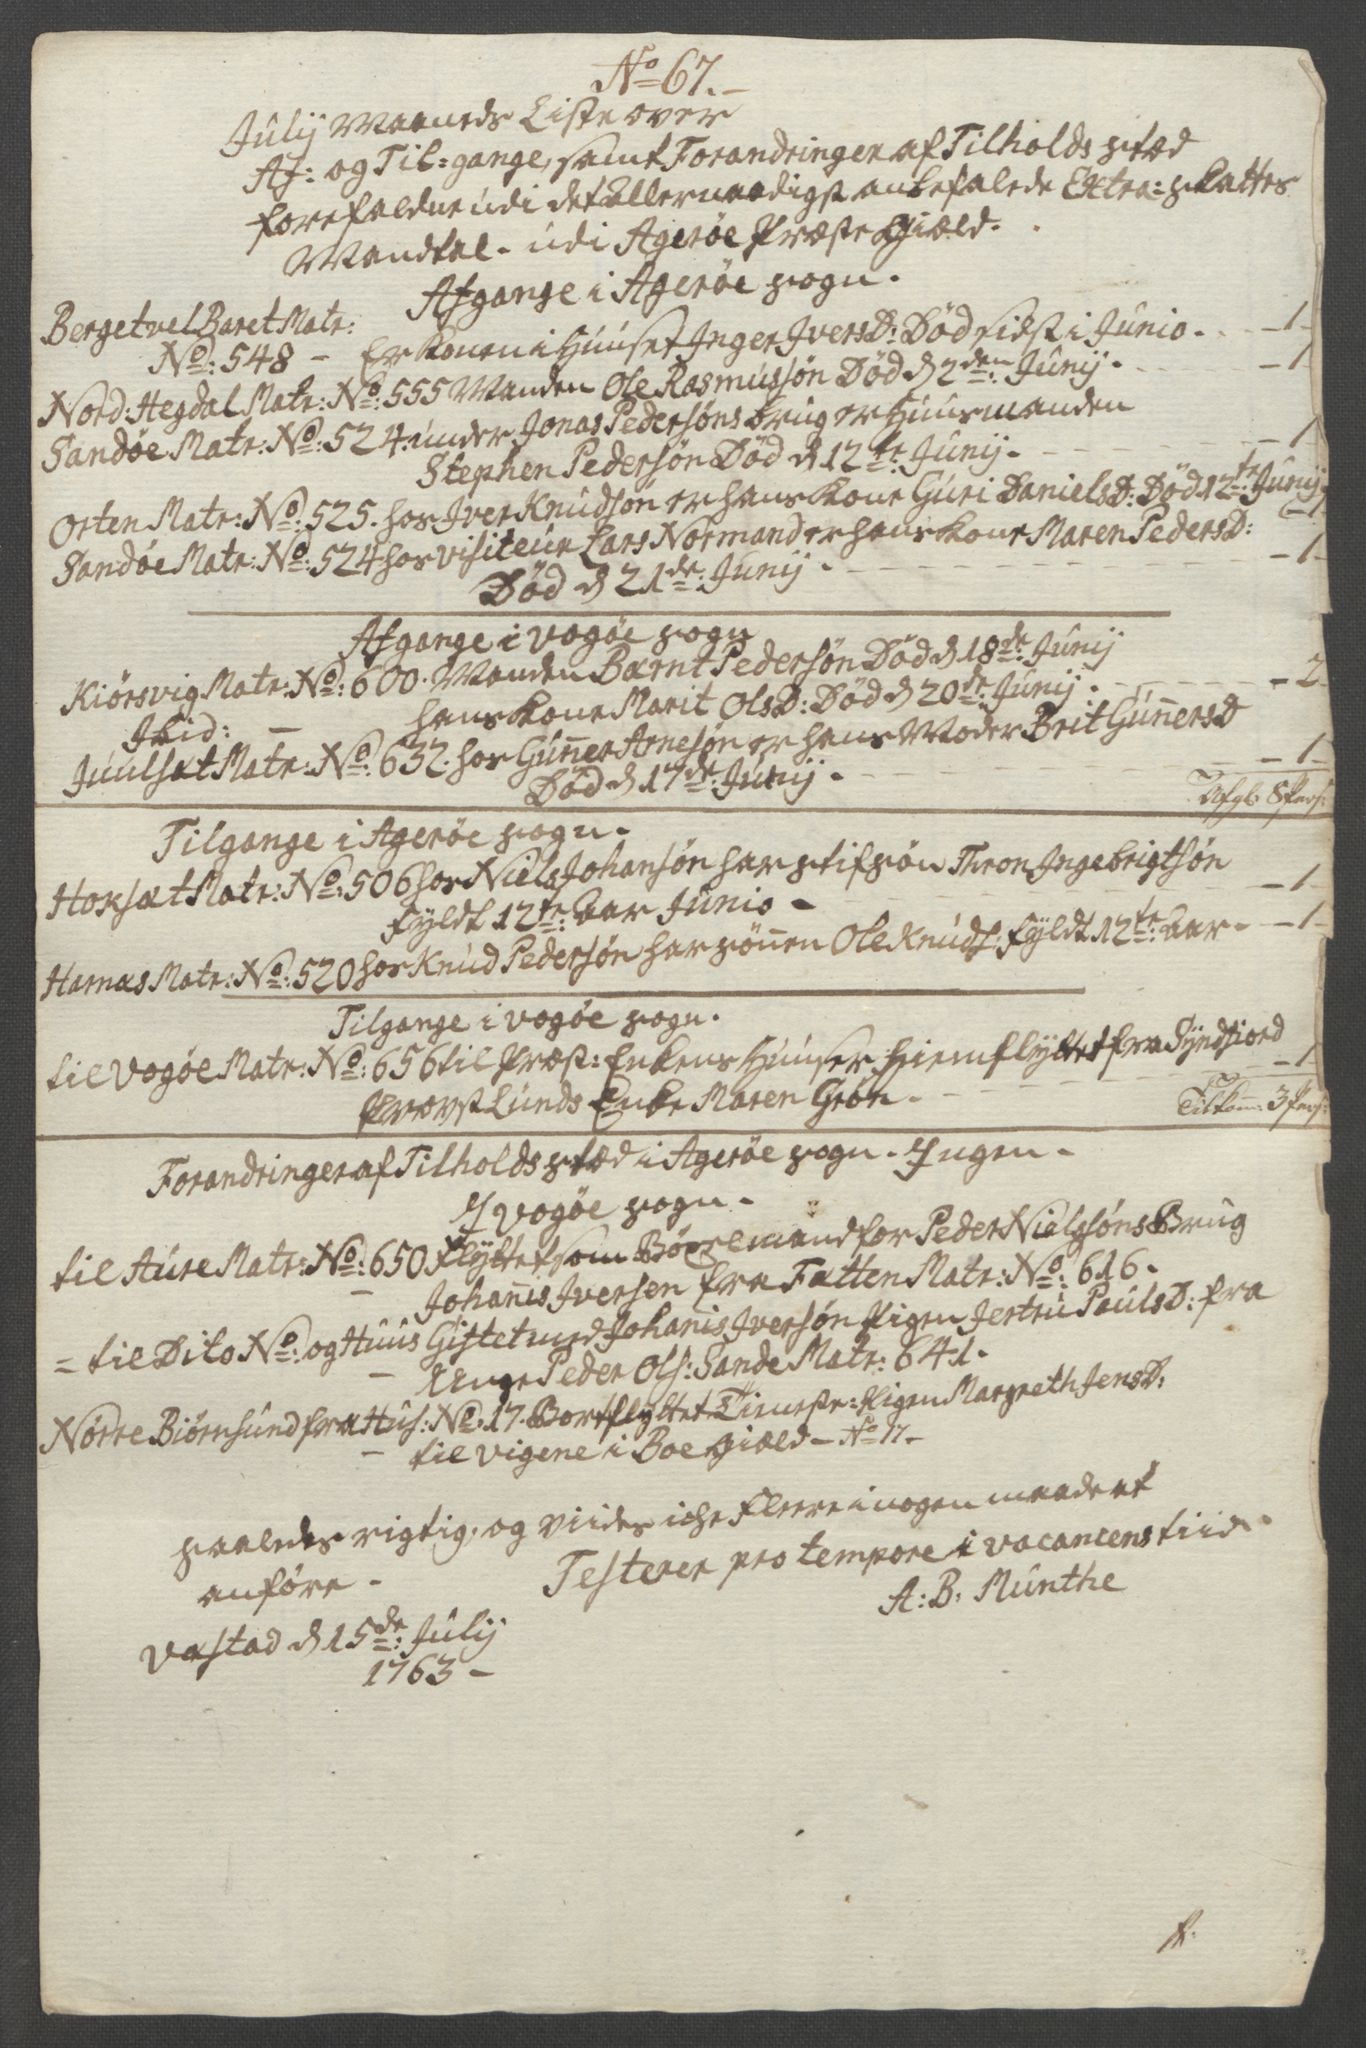 No 67.
Julij Maaneds Liste over
Af: og Til=gange, samt Forandringer af Tilholds stæd
forefaldne udi det allernaadigst anbefalede Extra=skattes
Mandtal. udi Agerøe Præste Gield.
Afgange i Agerøe sogn.
Berget vel Baret Matr:
No: 548 - Er Konen i Huuset Inger IversD: Død sidst i Junio. - 1
Nord: Hegdal Matr: No: 555 Manden Ole Rasmussøn Død d 2den Junij. - 1
Sandøe Matr: No: 524. under Jonas Pedersøns brug er Huusmanden
Stephen Pedersøn Død d 12te Junij. - 1
Orten Matr: No: 525. hos Iver Knudsøn er hans Kone Guri DanielsD: Død 12te Junij - 1
Sandøe Matr: No: 524 hos visiteur Lars Normand er hans Kone Maren PedersD:
Død d 21de Junij. - 1
Afgange i Vogøe sogn
Kiørsvig Matr: No: 600. Manden Bærnt Pedersøn Død d 18de Junij
Ibid: - hans Kone Marit OlsD: Død d 20de Junij. - 2
Juulsæt Matr: No: 632. hos Guñer Arnesøn er hans Moder Brit GuñersD
Død d 17de Junij. - 1
Afg: 8 Pers:
Tilgange i Agerøe sogn.
Hoksæt Matr: No: 506 hos Niels Johansøn har stifsøn Thron Ingebrigtsøn
fyldt 12te Aar Junio - 1
Harnæs Matr: No: 520 hos Knud Pedersøn har sønnen Ole Knuds: fyldt 12te Aar - 1
Tilgange i Vogøe sogn.
til Vogøe Matr: No: 656 til Præst: Enkens Huuser, hiemflyttet fra Syndfiord
Provst Lunds Enke Maren Grøn. - 1
Tilkom: 3 Pers:
Forandringer af Tilholds stæd i Agerøe sogn. Ingen.
I Vogøe sogn.
til Aure Matr: No: 650 flyttet som Bøxelmand for Peder Nielssøns Brug
- Johañis Iversen fra Tætten Matr: No: 616.
= til Dito No: og Huus Gistet med Johañis Iversøn Pigen Jertru PaulsD: fra
- Unge Peder Ols: Sande Matr: 641.
Nørre Biørnsund fra Hus: No: 17. Bortflyttet Tieneste: Pigen Margreth JensD:
- til Vigene i Boe Gield - No 17 -
saaledes rigtig, og viides iche fleere i nogen maade at
anføre -
Testerer pro tempore i vacancens tiid.
A: B: Munthe
Væstad d 15de Julij
1763 -